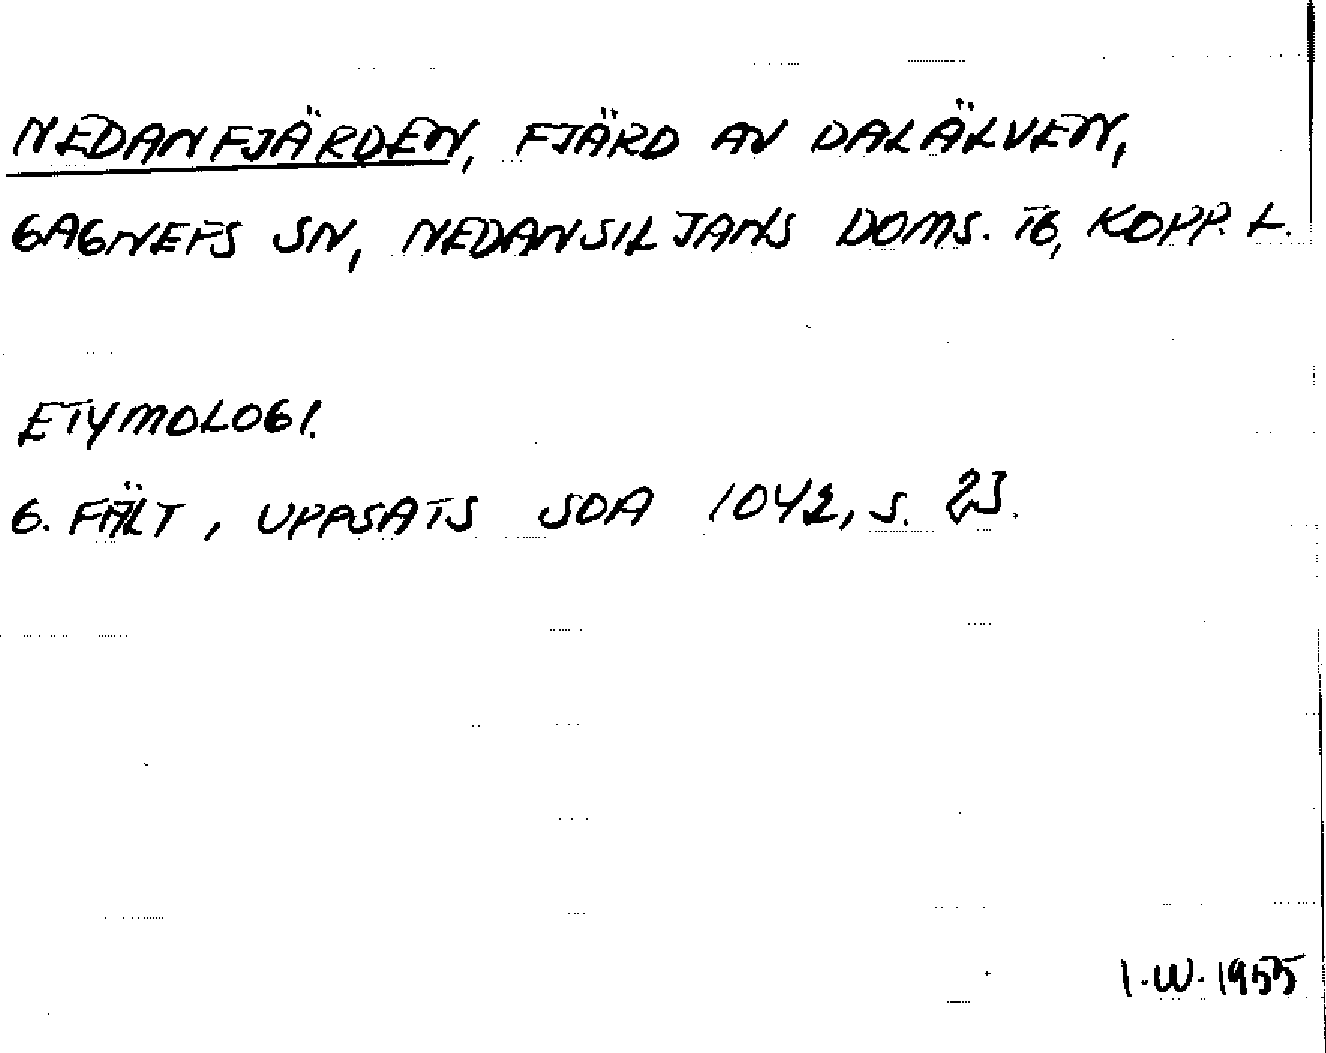 NEDANFJÄRDEN, FJÄRD AV DALÄLVEN,
GAGNEFS SN, NEDANSILJANS DOMS. TG, KOPP. L.
ETYMOLOGI.
G. FÄLT, UPPSATS SOA 1042, S. 23.
I.W. 1955